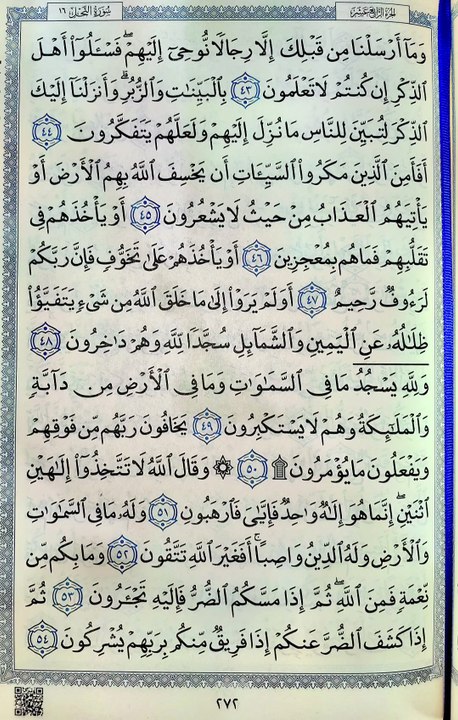 سُورَةُ النَّحْلِ ١٦
الجُزْءُ الرَّابِعَ عَشَرَ
وَمَآ أَرْسَلْنَا مِن قَبْلِكَ إِلَّا رِجَالًا نُّوحِىٓ إِلَيْهِمْۖ فَسْـَٔلُوٓا۟ أَهْلَ
ٱلذِّكْرِ إِن كُنتُمْ لَا تَعْلَمُونَ ٤٣ بِٱلْبَيِّنَـٰتِ وَٱلزُّبُرِۗ وَأَنزَلْنَآ إِلَيْكَ
ٱلذِّكْرَ لِتُبَيِّنَ لِلنَّاسِ مَا نُزِّلَ إِلَيْهِمْ وَلَعَلَّهُمْ يَتَفَكَّرُونَ ٤٤
أَفَأَمِنَ ٱلَّذِينَ مَكَرُوا۟ ٱلسَّيِّـَٔاتِ أَن يَخْسِفَ ٱللَّهُ بِهِمُ ٱلْأَرْضَ أَوْ
يَأْتِيَهُمُ ٱلْعَذَابُ مِنْ حَيْثُ لَا يَشْعُرُونَ ٤٥ أَوْ يَأْخُذَهُمْ فِى
تَقَلُّبِهِمْ فَمَا هُم بِمُعْجِزِينَ ٤٦ أَوْ يَأْخُذَهُمْ عَلَىٰ تَخَوُّفٍ فَإِنَّ رَبَّكُمْ
لَرَءُوفٌ رَّحِيمٌ ٤٧ أَوَلَمْ يَرَوْا۟ إِلَىٰ مَا خَلَقَ ٱللَّهُ مِن شَىْءٍ يَتَفَيَّؤُا۟
ظِلَـٰلُهُۥ عَنِ ٱلْيَمِينِ وَٱلشَّمَآئِلِ سُجَّدًا لِّلَّهِ وَهُمْ دَٰخِرُونَ ٤٨
وَلِلَّهِ يَسْجُدُ مَا فِى ٱلسَّمَـٰوَٰتِ وَمَا فِى ٱلْأَرْضِ مِن دَآبَّةٍ
وَٱلْمَلَـٰٓئِكَةُ وَهُمْ لَا يَسْتَكْبِرُونَ ٤٩ يَخَافُونَ رَبَّهُم مِّن فَوْقِهِمْ
وَيَفْعَلُونَ مَا يُؤْمَرُونَ ۩ ٥٠ ۞ وَقَالَ ٱللَّهُ لَا تَتَّخِذُوٓا۟ إِلَـٰهَيْنِ
ٱثْنَيْنِۖ إِنَّمَا هُوَ إِلَـٰهٌ وَٰحِدٌ فَإِيَّـٰىَ فَٱرْهَبُونِ ٥١ وَلَهُۥ مَا فِى ٱلسَّمَـٰوَٰتِ
وَٱلْأَرْضِ وَلَهُ ٱلدِّينُ وَاصِبًاۚ أَفَغَيْرَ ٱللَّهِ تَتَّقُونَ ٥٢ وَمَا بِكُم مِّن
نِّعْمَةٍ فَمِنَ ٱللَّهِۖ ثُمَّ إِذَا مَسَّكُمُ ٱلضُّرُّ فَإِلَيْهِ تَجْـَٔرُونَ ٥٣ ثُمَّ
إِذَا كَشَفَ ٱلضُّرَّ عَنكُمْ إِذَا فَرِيقٌ مِّنكُم بِرَبِّهِمْ يُشْرِكُونَ ٥٤
٢٧٢